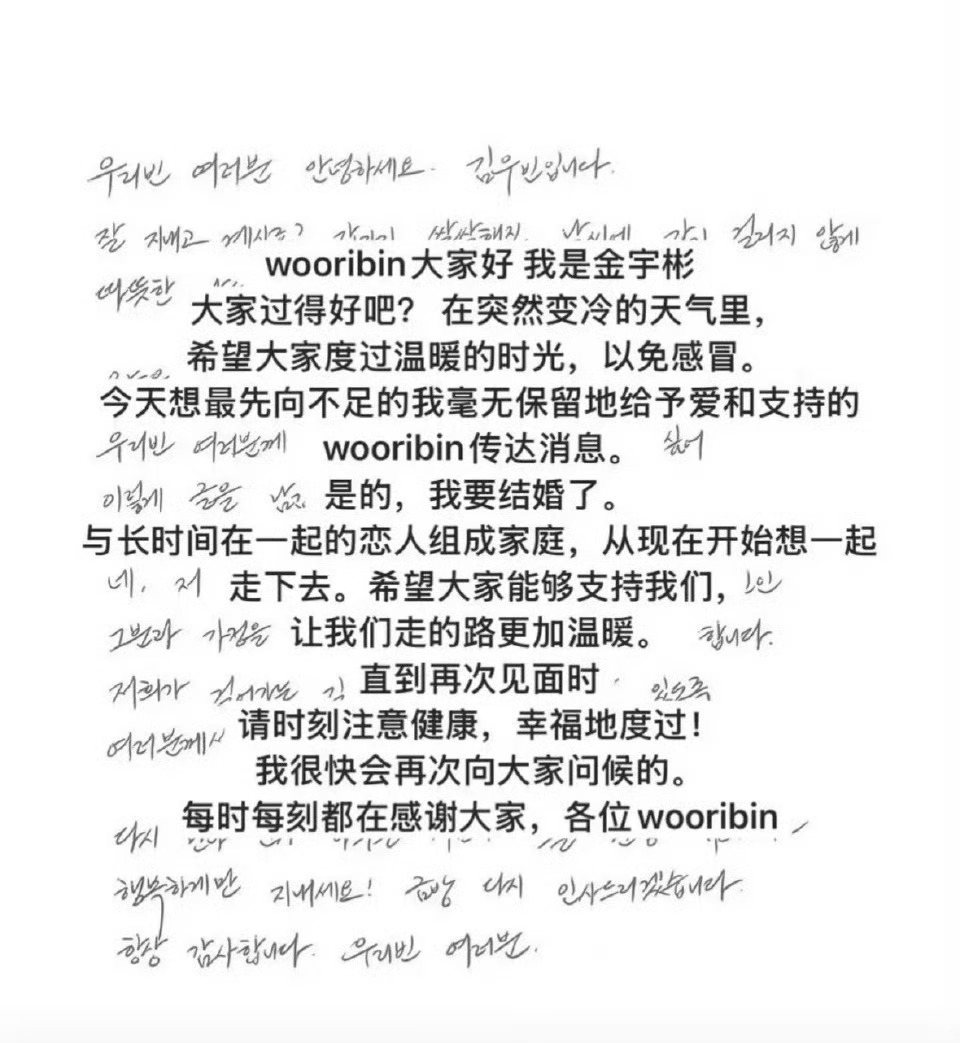 우리빈 여러분 안녕하세요. 김우빈입니다.
잘 지내고 계시죠? 갑자기 쌀쌀해진 날씨에 감기 걸리지 않게
wooribin大家好 我是金宇彬
따뜻한
大家过得好吧？ 在突然变冷的天气里，
希望大家度过温暖的时光，以免感冒。
今天想最先向不足的我毫无保留地给予爱和支持的
우리빈 여러분께 wooribin传达消息。 싶어
이렇게 글을 是的，我要结婚了。
与长时间在一起的恋人组成家庭，从现在开始想一起
네, 저 走下去。希望大家能够支持我们，
그분과 가정을 让我们走的路更加温暖。 합니다.
저희가 걸어가는 直到再次见面时 있도록
여러분께서 请时刻注意健康，幸福地度过！
我很快会再次向大家问候的。
每时每刻都在感谢大家，各位wooribin
다시
행복하게만 지내세요! 금방 다시 인사드리겠습니다.
항상 감사합니다. 우리빈 여러분.